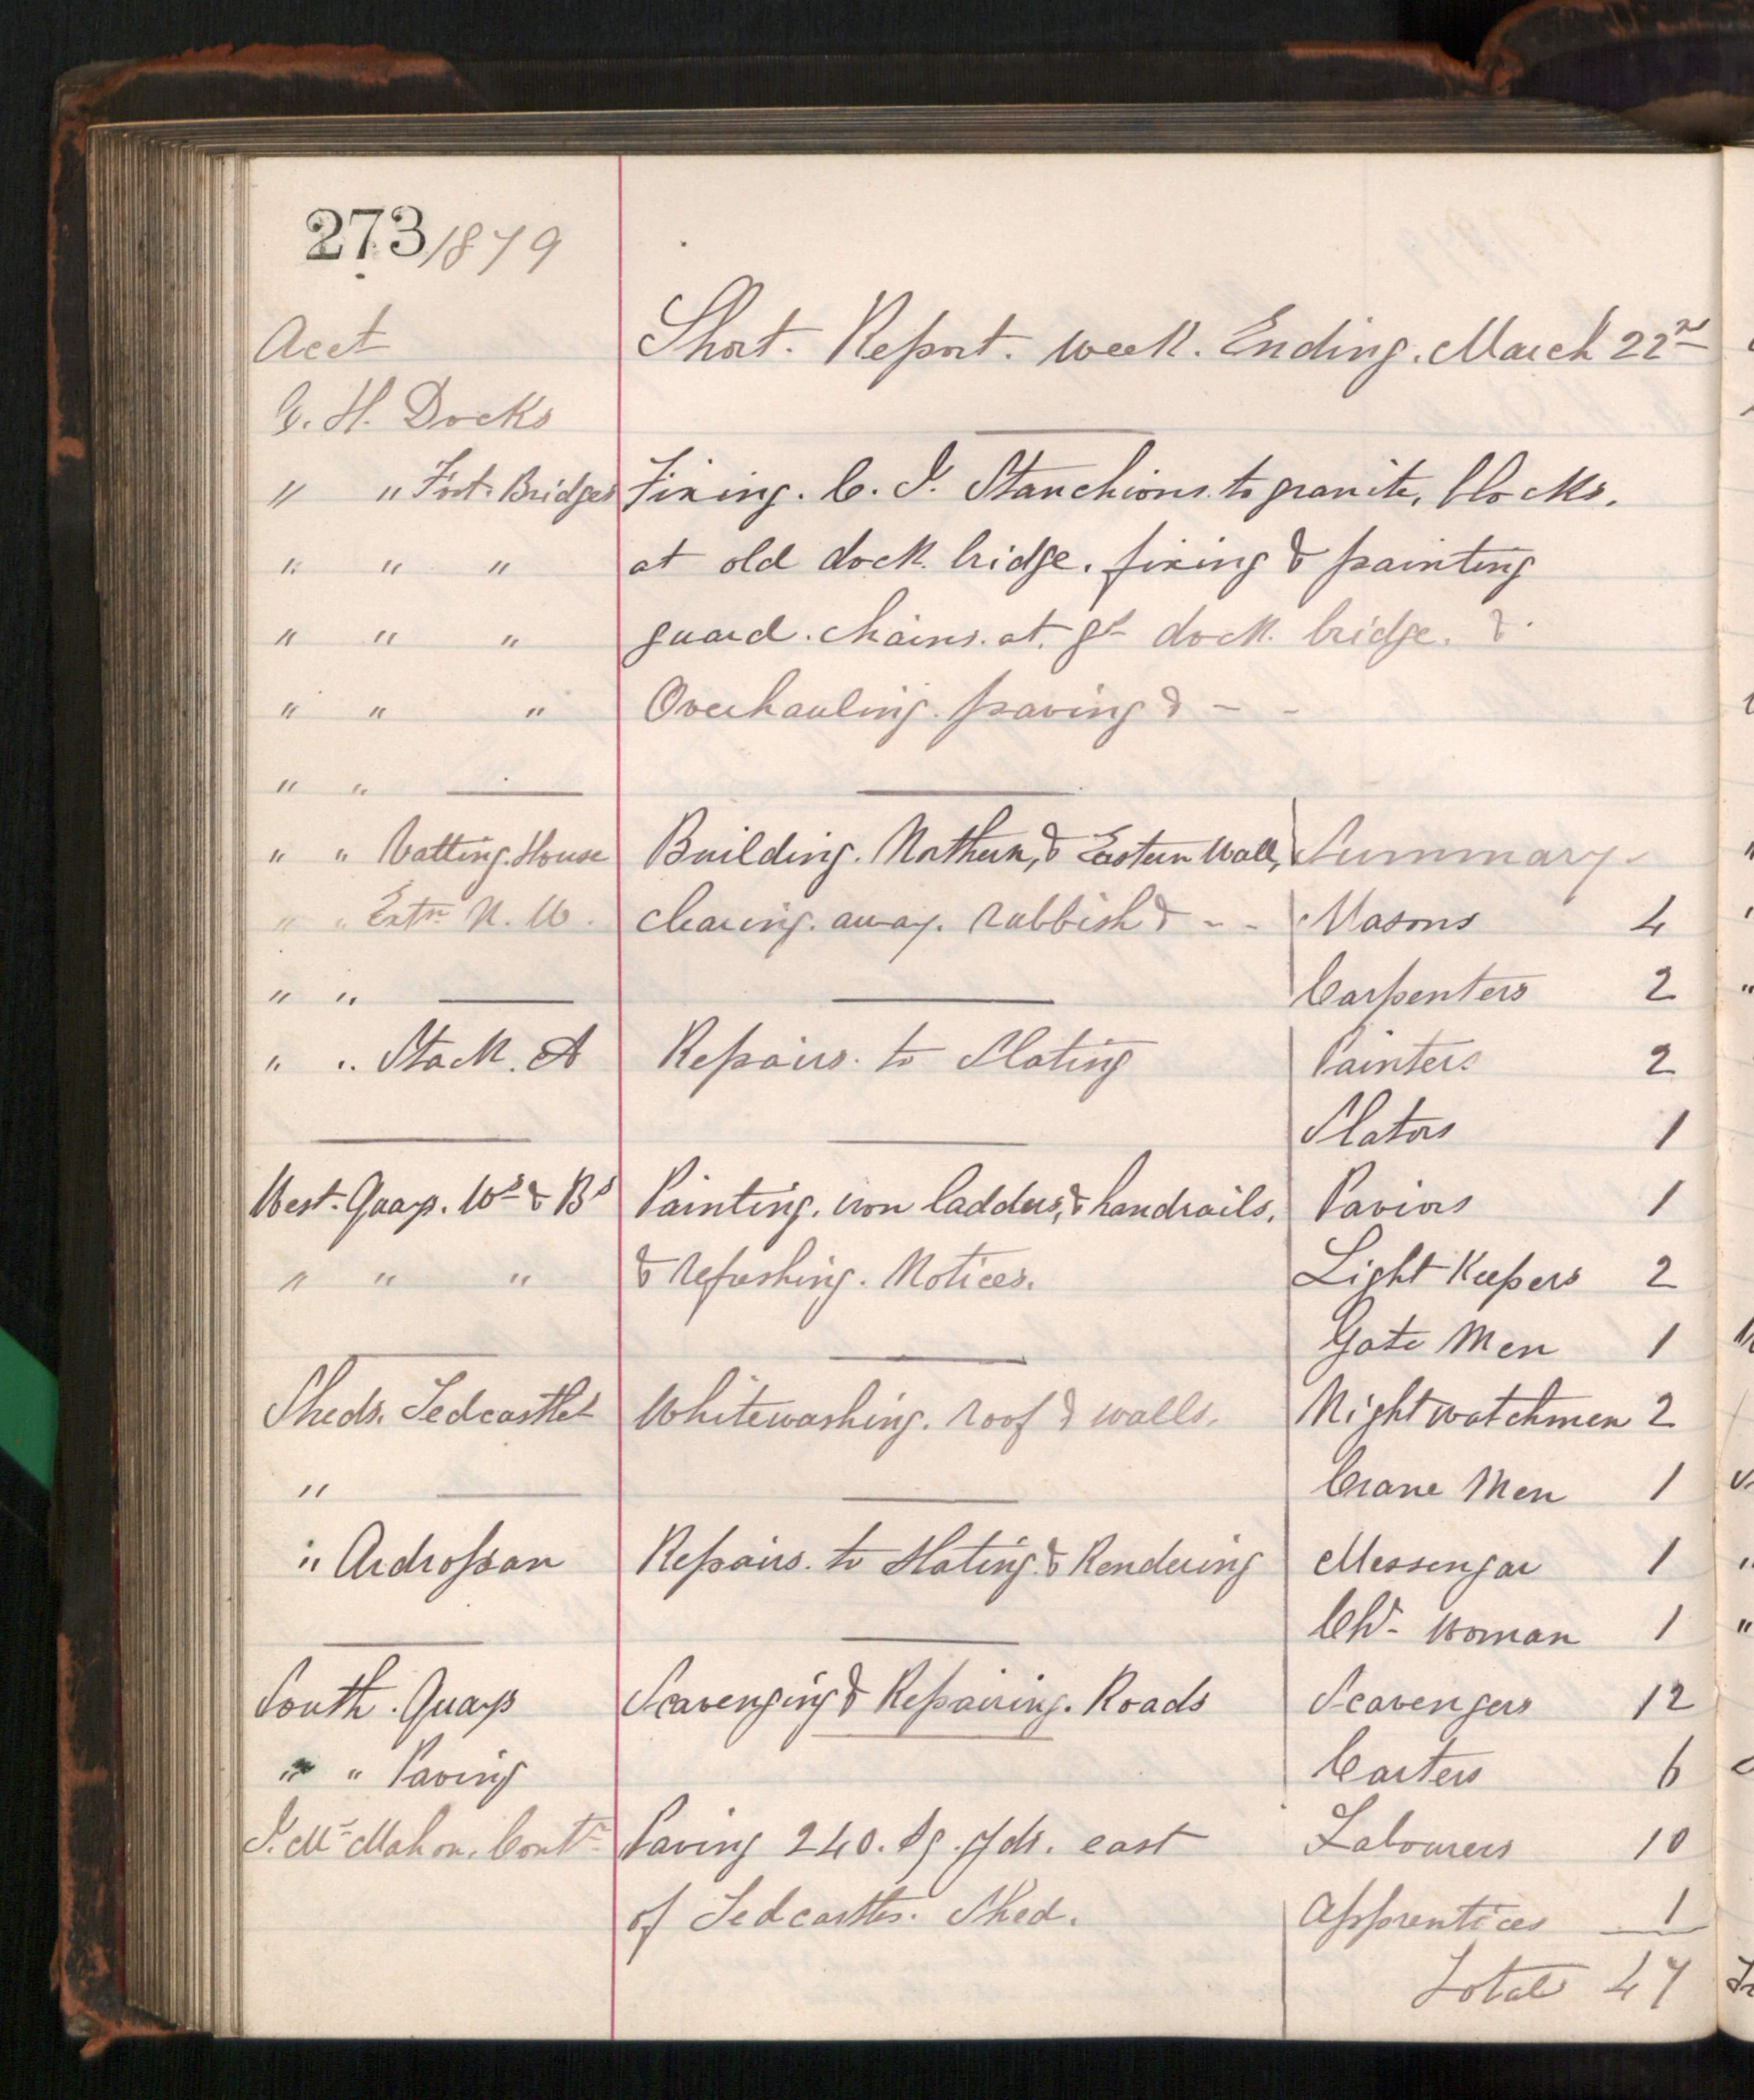 273/1879
Acct
Short. Report. week. Ending. March 22nd
C. H. Docks
" " Foot. Bridges Fixing. C. I. Stanchions. to granite, blocks.
" " " at old dock bridge. fixing & painting
" " " guard. chains. at. gt dock bridge. &
" " " Overhauling. paving & - -
" "
" " Vatting. House Building. Northern, & Eastern Wall, Summary
" " Extn N. W. clearing. away. rubbish & - - Masons 4
" " Carpenters 2
" " Stack. A Repairs. to Slating Painters 2
Slators 1
West. Quay. Ws & Bs Painting. iron ladders, & handrails. Paviors 1
" " " & refreshing. Notices. Light Keepers 2
Gate Men 1
Sheds. Tedcastles Whitewashing. roof & walls. Night watchmen 2
" Crane Men 1
" Ardrossan Repairs. to Slating & Rendering Messengar 1
Ch. Woman 1
South. Quay Scavenging & Repairing. Roads Scavengers 12
" " Paving Carters 6
J. Mc Mahon. Contr Paving 240. Sq. yds. east Labourers 10
of Tedcastles. Shed. Apprentices 1
Total 47